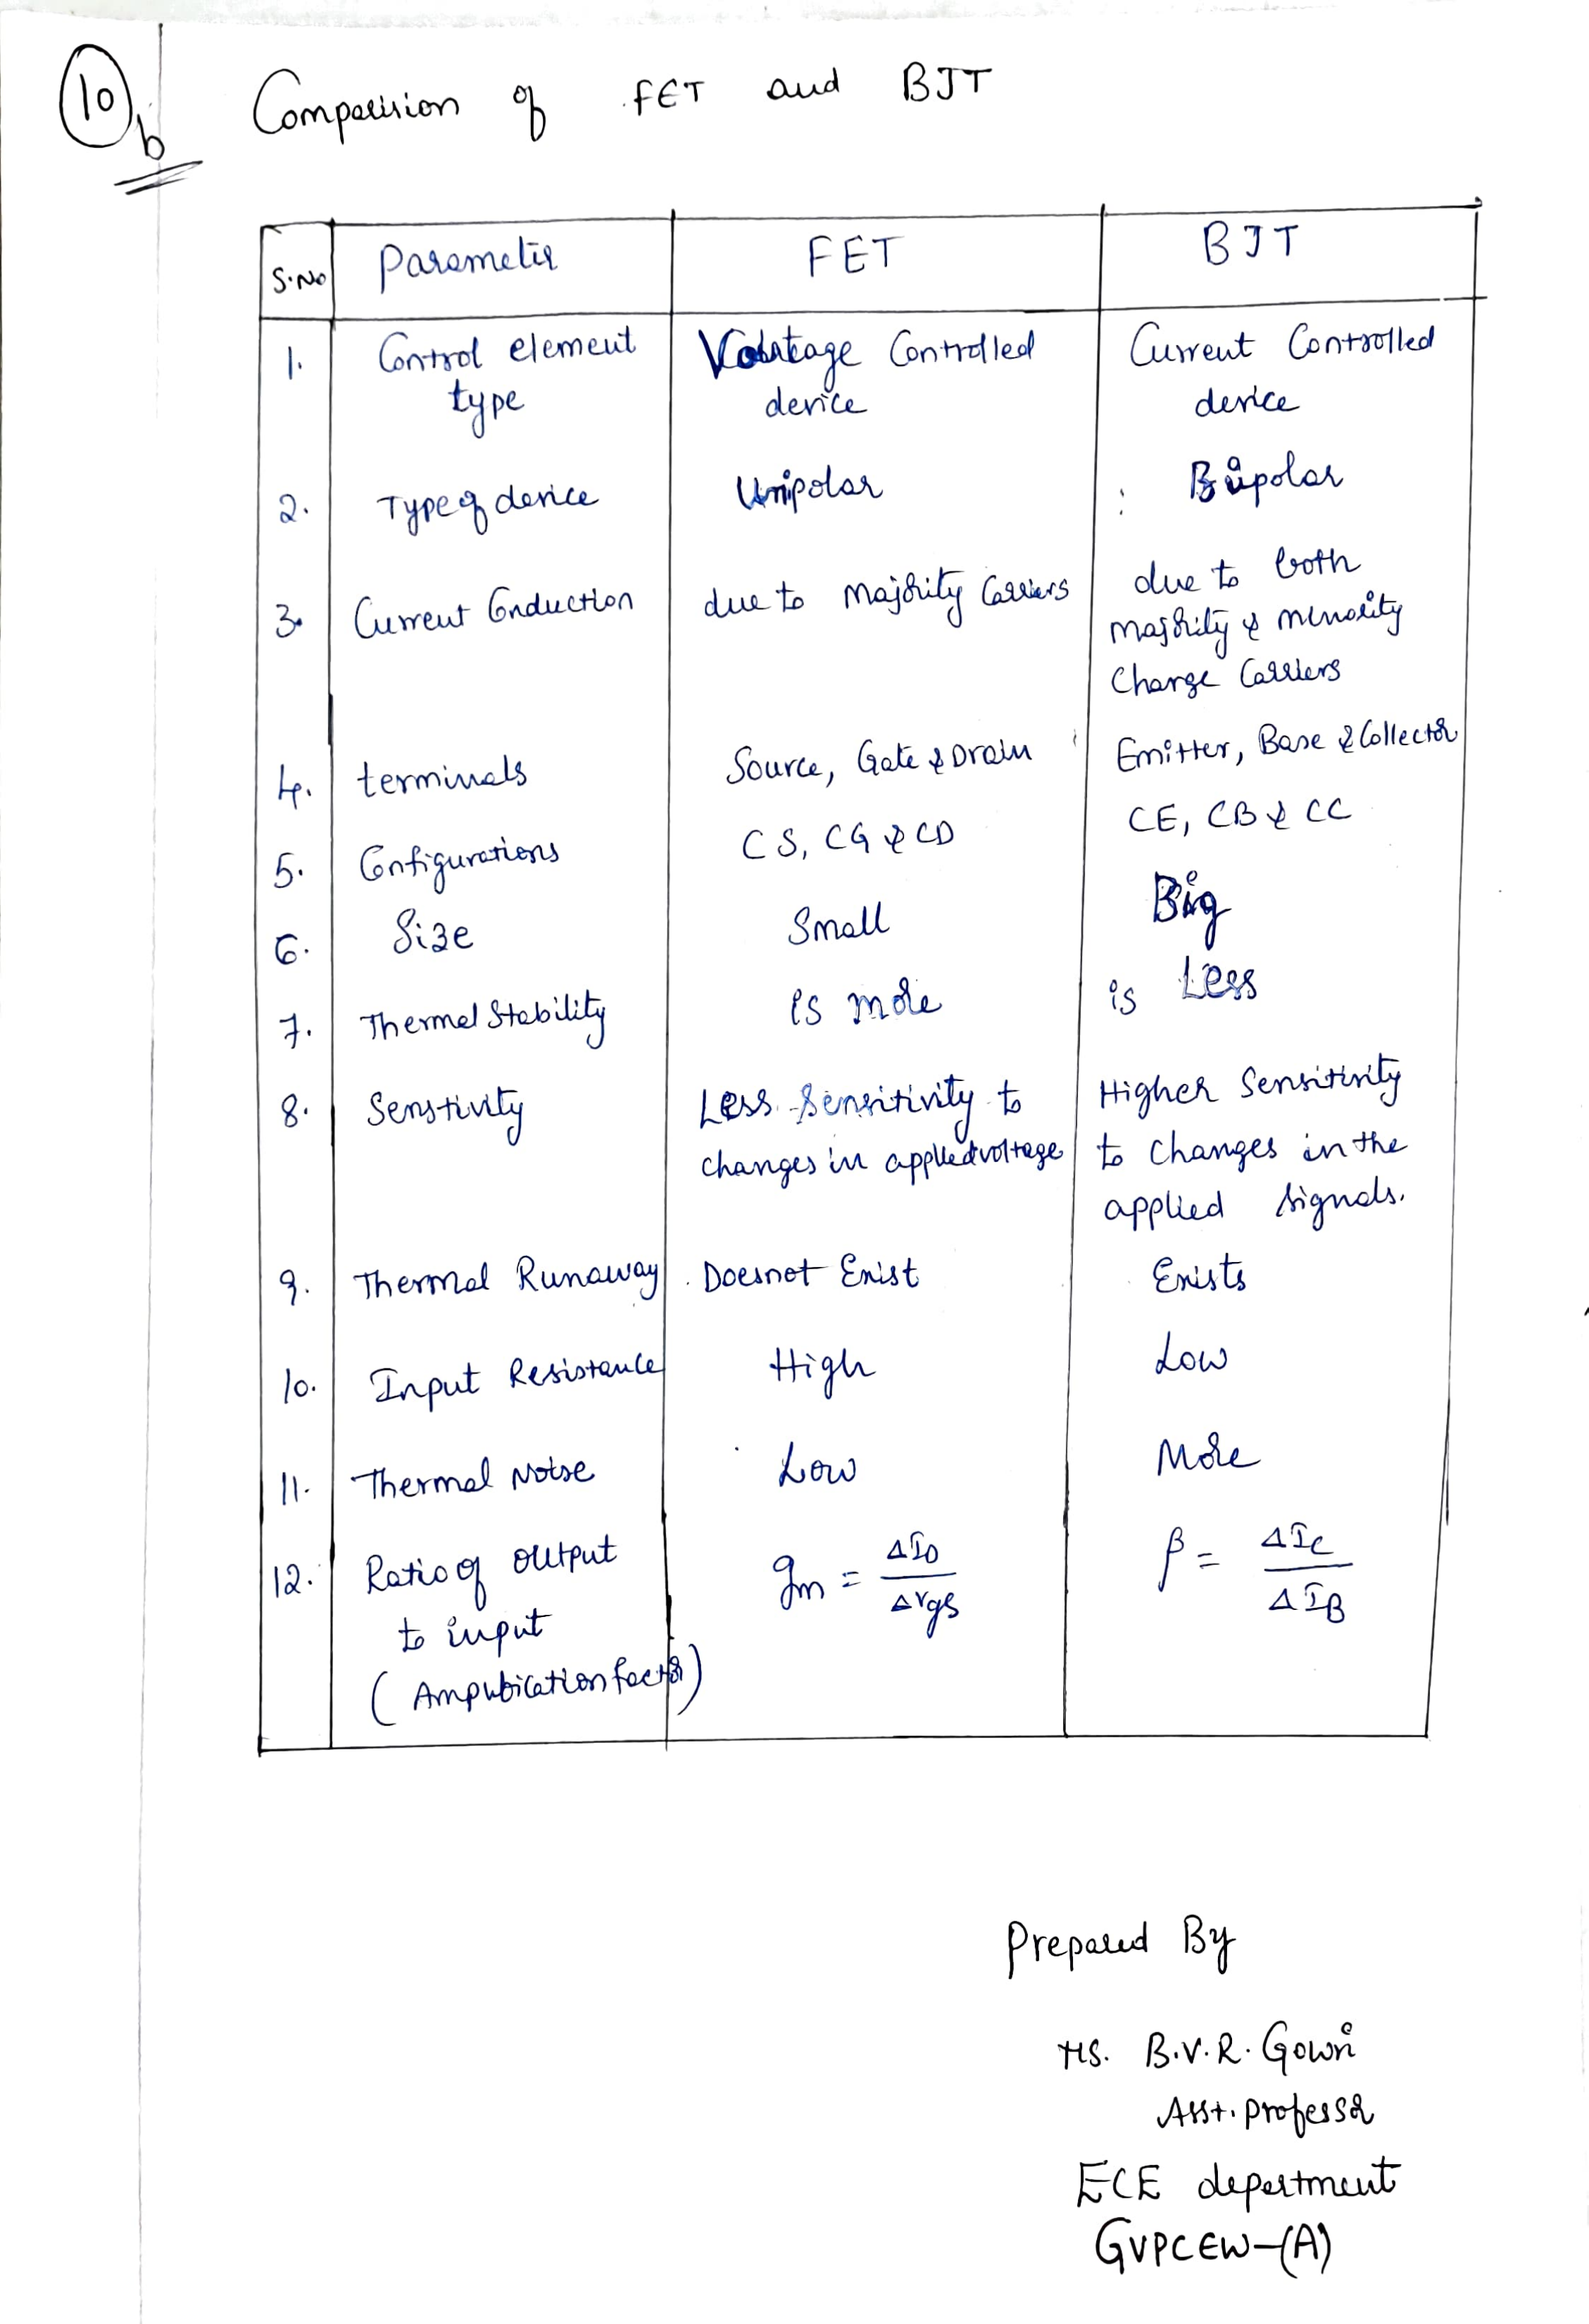 10 b Comparision of FET and BJT
S.No Parameter FET BJT
1. Control element type Voltage Controlled device Current Controlled device
2. Type of device Unipolar Bipolar
3. Current Conduction due to majority Carriers due to both majority & minority Charge Carriers
4. terminals Source, Gate & Drain Emitter, Base & Collector
5. Configurations CS, CG & CD CE, CB & CC
6. Size Small Big
7. Thermal Stability is more is Less
8. Senstivity Less Sensitivity to changes in applied voltage Higher Sensitivity to changes in the applied signals.
9. Thermal Runaway Doesnot Exist Exists
10. Input Resistance High Low
11. Thermal Noise Low More
12. Ratio of output to input (Amplification factor) gm = ΔID / ΔVgs β = ΔIC / ΔIB
Prepared By
Ms. B.V.R. Gowri
Asst. professor
ECE department
GVPCEW-(A)